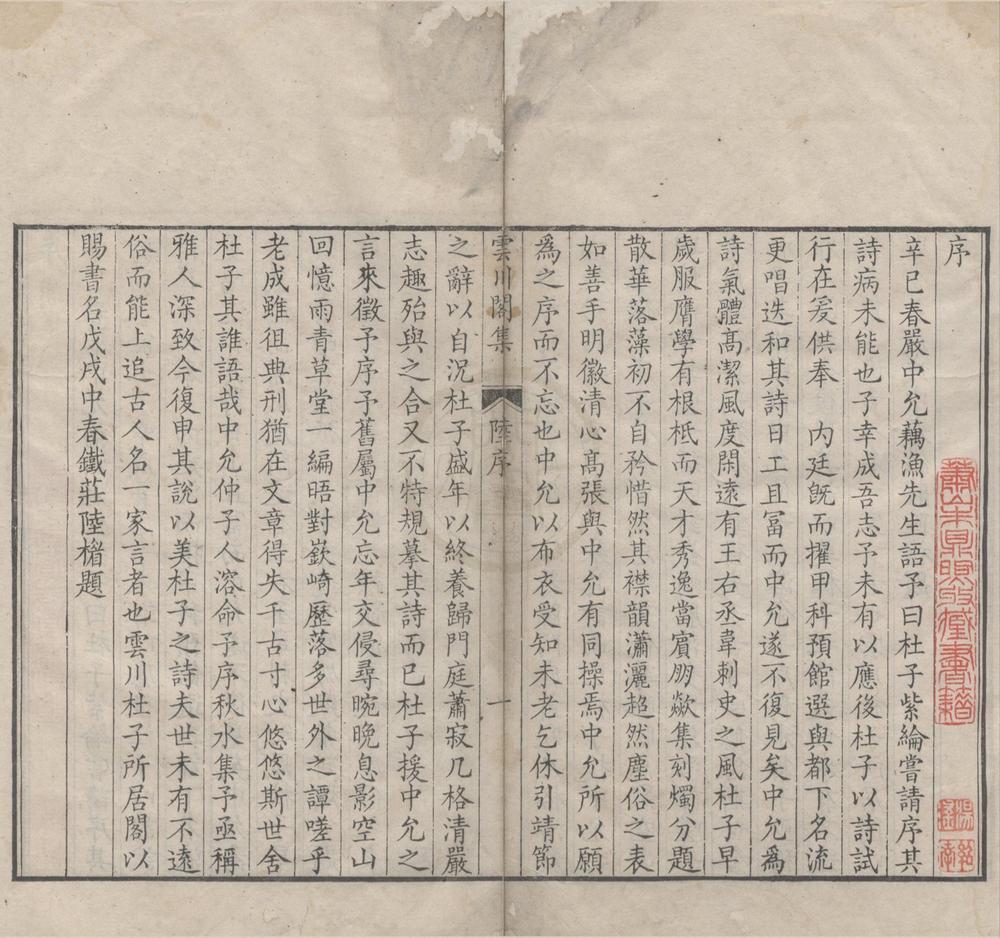 序
辛巳春嚴中允藕漁先生語予曰杜子紫綸嘗請序其
詩病未能也子幸成吾志予未有以應後杜子以詩試
行在爰供奉 內廷旣而擢甲科預館選與都下名流
更唱迭和其詩日工且冨而中允遂不復見矣中允為
詩氣體髙潔風度閑遠有王右丞韋刺史之風杜子早
歲服膺學有根柢而天才秀逸當賔朋歘集刻燭分題
散華落藻初不自矜惜然其襟韻瀟灑超然塵俗之表
如善手明徽清心髙張與中允有同操焉中允所以願
爲之序而不忘也中允以布衣受知未老乞休引靖節
雲川閣集 陸序 一
之辭以自況杜子盛年以終養歸門庭蕭寂几格清嚴
志趣殆與之合又不特規摹其詩而已杜子援中允之
言來徵予序予舊屬中允忘年交侵尋晼晚息影空山
回憶雨青草堂一編晤對嶔崎歷落多世外之譚嗟乎
老成雖徂典刑猶在文章得失千古寸心悠悠斯世舍
杜子其誰語哉中允仲子人溶命予序秋水集予亟稱
雅人深致今復申其說以美杜子之詩夫世未有不遠
俗而能上追古人名一家言者也雲川杜子所居閣以
賜書名戊戌中春鐵莊陸楣題